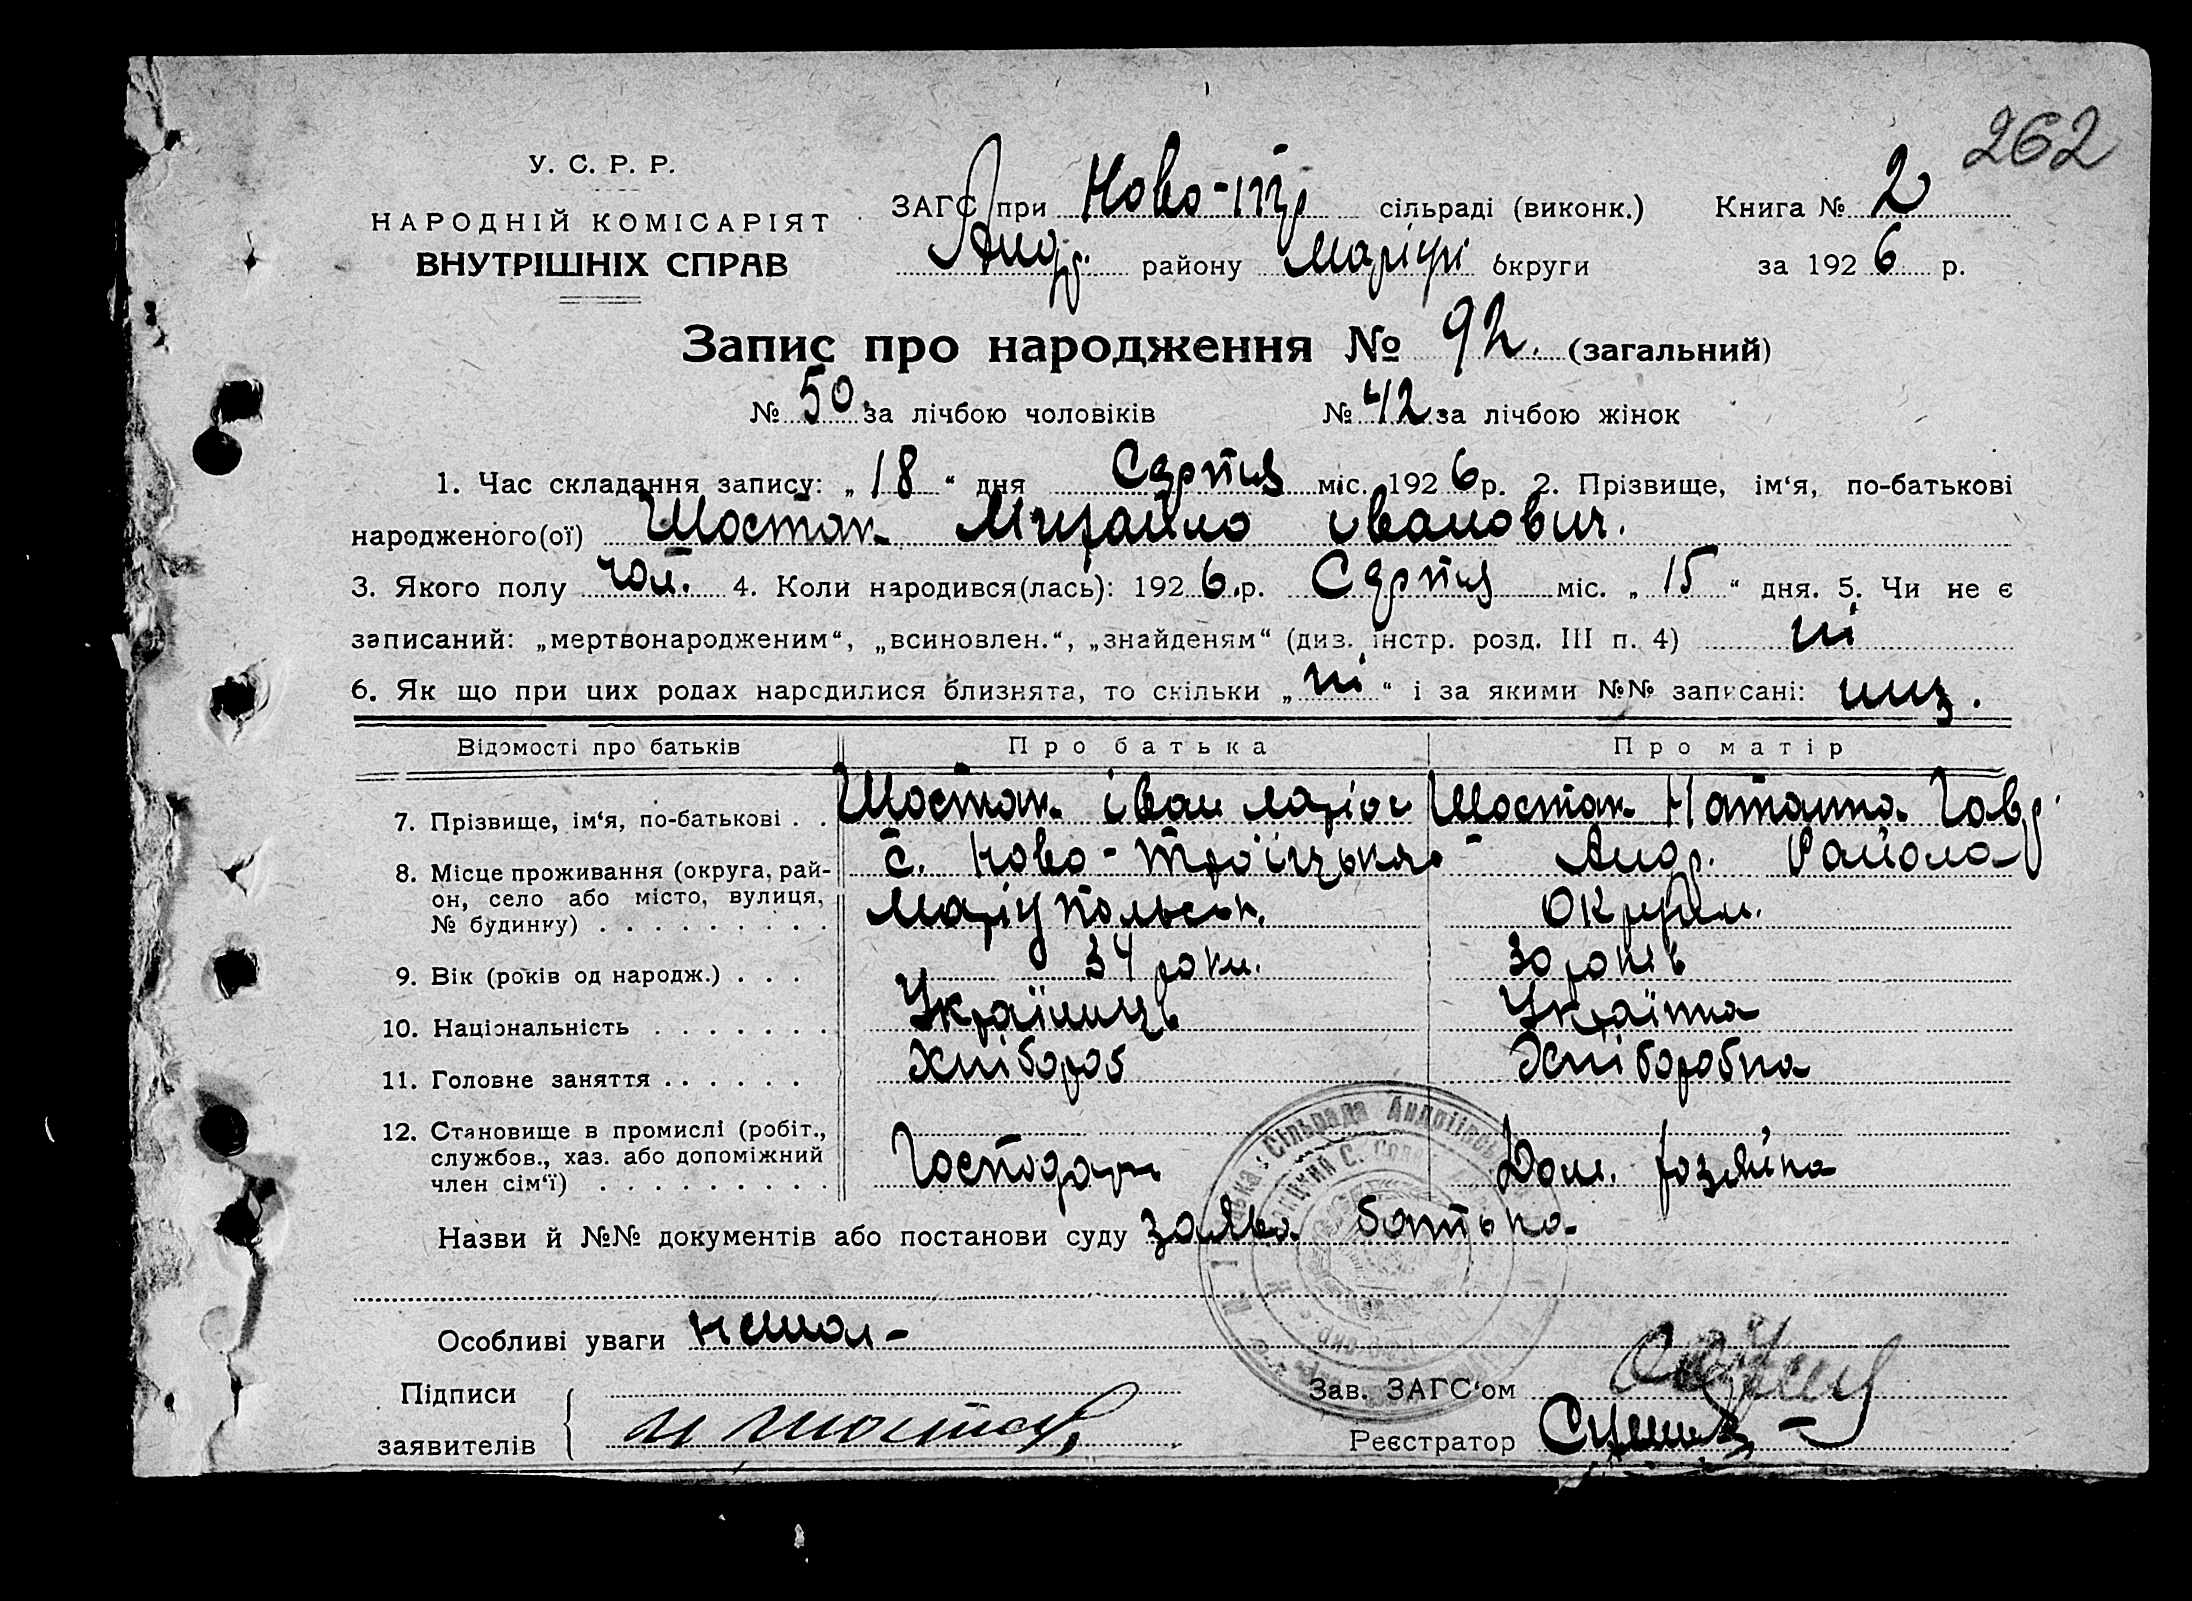 262
У. С. Р. Р.
НАРОДНІЙ КОМІСАРІЯТ
ВНУТРІШНІХ СПРАВ
ЗАГС при Ново-тр сільраді (виконк.) Книга № 2
Андр. району Маріуп округи за 1926 р.
Запис про народження № 92. (загальний)
№ 50 за лічбою чоловіків № 42 за лічбою жінок
1. Час складання запису: „18“ дня Серпня міс. 1926 р. 2. Прізвище, ім‘я, по-батькові
народженого(ої) Шостак Михайло іванович.
3. Якого полу чол. 4. Коли народився(лась): 1926 р. Серпня міс. „15“ дня. 5. Чи не є
записаний: „мертвонародженим“, „всиновлен.“, „знайденям“ (диз. інстр. розд. III п. 4) ні
6. Як що при цих родах народилися близнята, то скільки „ні“ і за якими №№ записані:
Відомості про батьків Про батька Про матір
7. Прізвище, ім‘я, по-батькові . . Шостак іван Шостак Наталка Гавр
8. Місце проживання (округа, рай-
он, село або місто, вулиця,
№ будинку) . . . . . . . . .
с. Ново-троїцька - Андр. Района
Маріупольськ. Округи.
9. Вік (років од народж.) . . . 34 роки. 30 років
10. Національність . . . . . . . Українець Українка
11. Головне заняття . . . . . . Хлібороб Хліборобка
12. Становище в промислі (робіт.,
службов., хаз. або допоміжний
член сім‘ї) . . . . . . . . .
Господарь Дом. хозяйка
Назви й №№ документів або постанови суду заява батька
Особливі уваги немає -
Підписи
заявителів
И Шостак
Зав. ЗАГС‘ом
Реєстратор
Сільрада Андріївсь